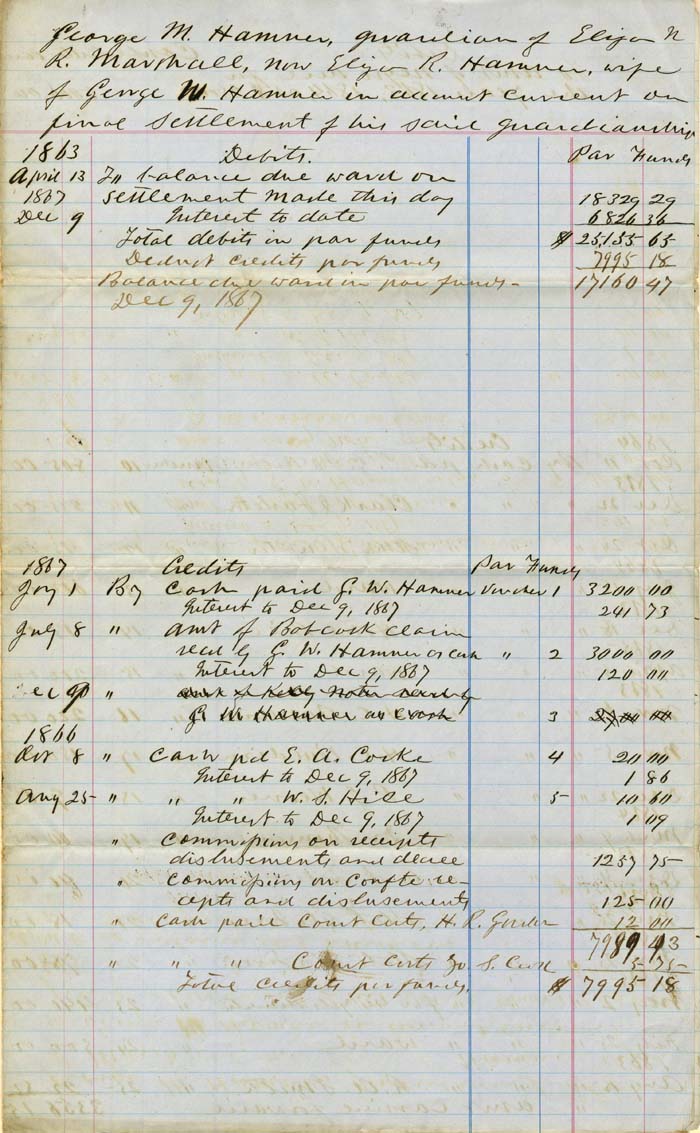 George M. Hamner, guardian of Eliza N
R. Marshall, now Eliza R. Hamner, wife
of George W. Hamner in account current on
final settlement of his said guardianship
1863 Debits. Par Funds
April 13 To balance due ward on
1867 settlement made this day 18329 29
Dec 9 Interest to date 6826 36
Total debits in par funds $ 25,155 65
Deduct credits par funds 7995 18
Balance due ward in par funds - 17160 47
Dec 9, 1867
1867 Credits Par Funds
Jany 1 By cash paid G. W. Hamner Voucher 1 3200 00
Interest to Dec 9, 1867 241 73
July 8 " amt of Babcock claim
recd by G. W. Hamner as cash " 2 3000 00
Interest to Dec 9, 1867 120 00
Dec 9 "
G. W. Hamner as cash 3
1866
Oct 8 " cash pd E. A. Cocke 4 20 00
Interest to Dec 9, 1867 1 86
Aug 25 " " " W. S. Hill 5 10 60
Interest to Dec 9, 1867 1 09
" commissions on receipts
disbursements and decree 1257 75
" commissions on Confte re-
cepts and disbursements 125 00
" cash paid Court Costs, H. R. 12 00
7989 43
" " " Court Costs 5 75
Total credits par funds. $ 7995 18